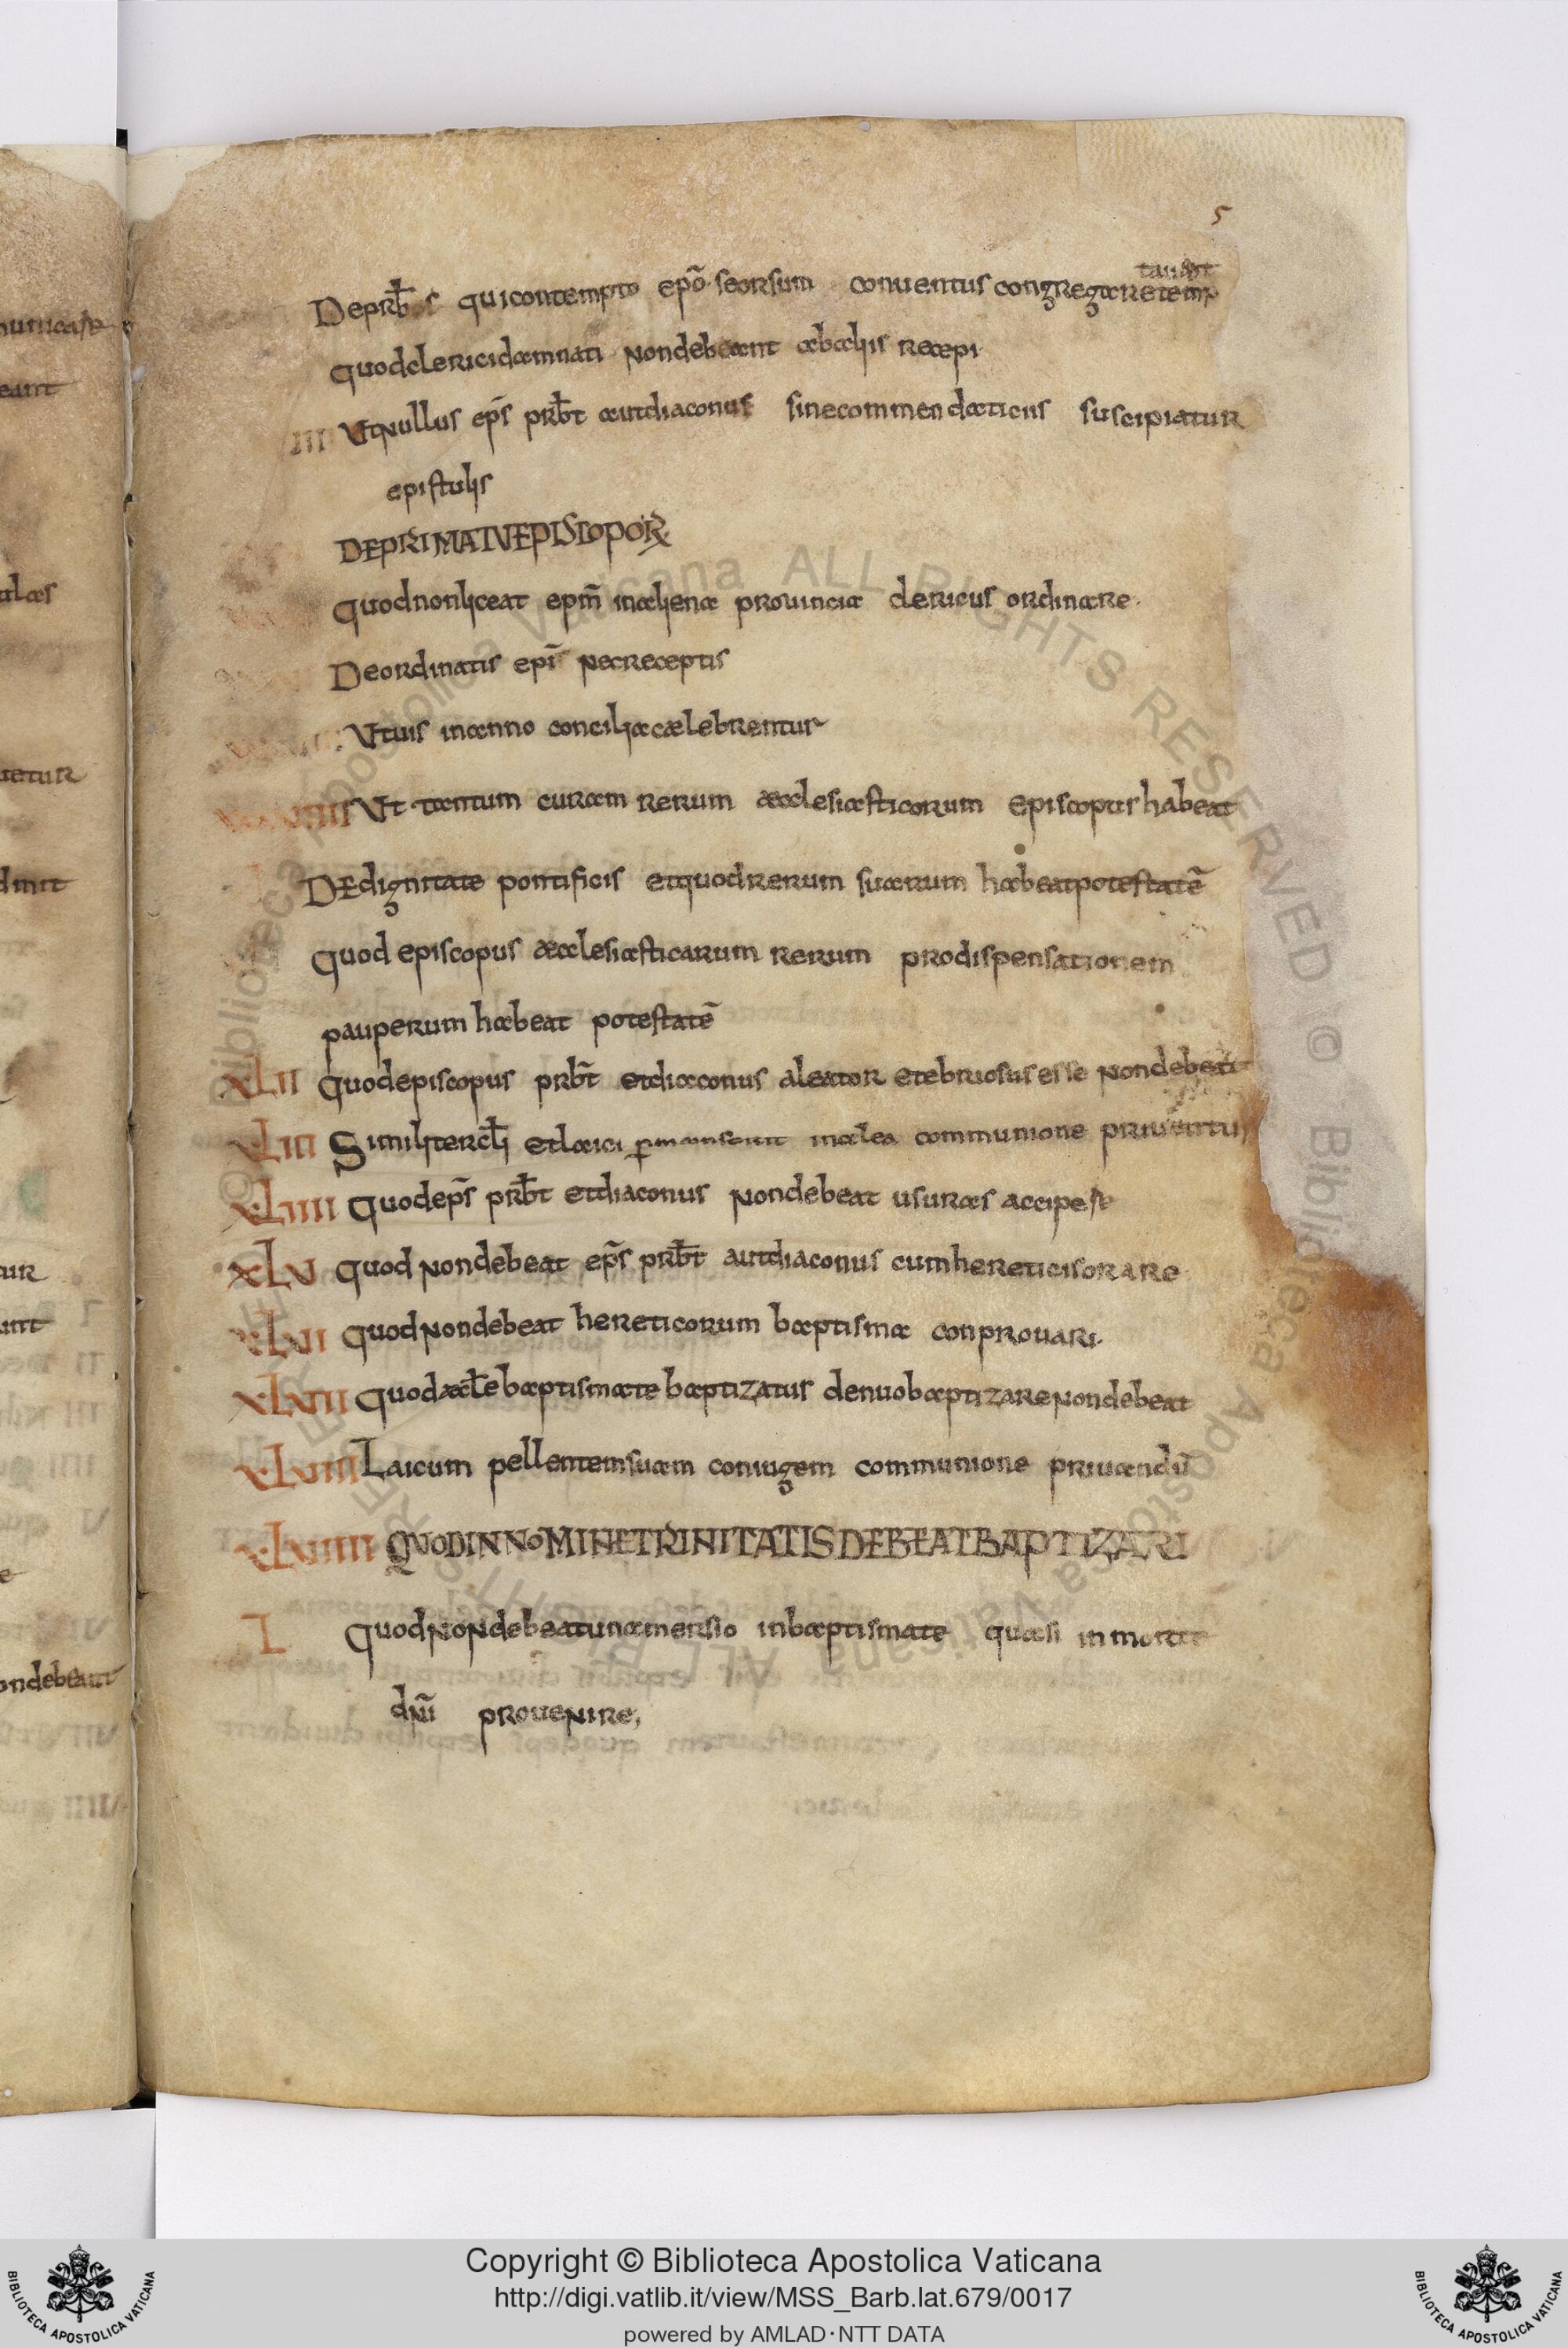 5
taverit
De prb̄os qui contempto ep̄o seorsum conventus congregare temp
quod clerici damnati non debeant ab aliis recepi
IIII Ut nullus ep̄s prb̄t aut diaconus sine commendaticiis suscipiatur
epistulis
DE PRIMATU EPISCOPOꝜ
quod non liceat ep̄m in aliena provincia clericus ordinare
De ordinatis ep̄is nec receptis
Ut vis in anno concilia cælebrentur
XXXVIIII Ut tantum curam rerum æcclesiasticorum episcopus habeat
DE dignitate pontificis et quod rerum suarum habeat potestatē
quod episcopus æcclesiasticarum rerum pro dispensationem
pauperum habeat potestatē
XLII quod episcopus prb̄t et diaconus aleator et ebriosus esse non debeat
XLIII Similiter cl̄i et laici ꝑmanserint in alea communione priventur
XLIIII quod ep̄s prb̄t et diaconus non debeat usuras accipere
XLV quod non debeat ep̄s prb̄t aut diaconus cum hereticis orare
XLVI quod non debeat hereticorum baptisma conprovari
XLVII quod æccl̄e baptismate baptizatus denuo baptizare non debeat
XLVIII Laicum pellentem suam coniugem communione privandū
XLVIIII QUOD IN NOMINE TRINITATIS DEBEAT BAPTIZARI
L quod non debeat una mersio in baptismate quasi in morte
dn̄i provenire;
Copyright © Biblioteca Apostolica Vaticana
http://digi.vatlib.it/view/MSS_Barb.lat.679/0017
powered by AMLAD·NTT DATA